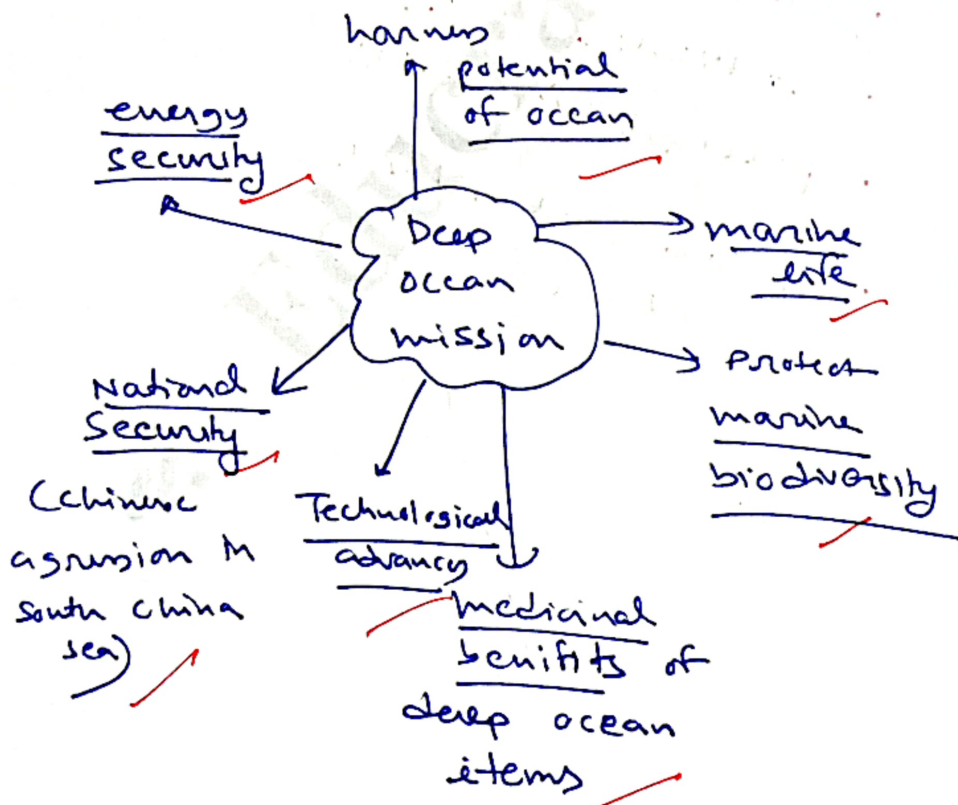 harness
potential
of ocean
energy
security
Deep
ocean
mission
marine
life
Protect
marine
biodiversity
National
Security
(Chinese
agression in
south china
sea)
Technological
advancy
medicinal
benifits of
deep ocean
items